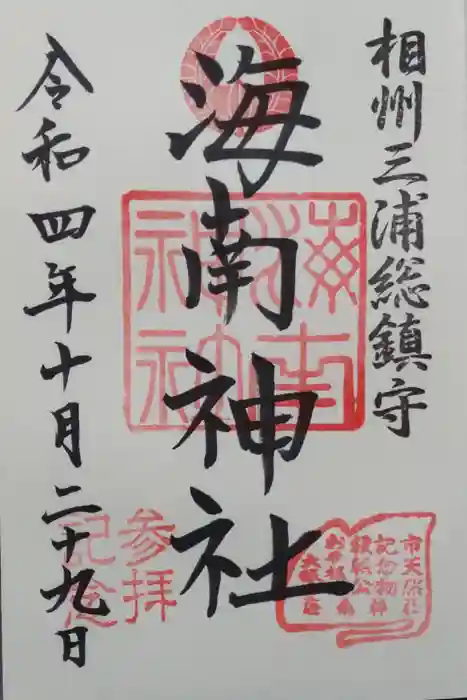 相州三浦総鎮守
海南神社
令和四年十月二十九日
海南神社
参拝
記念